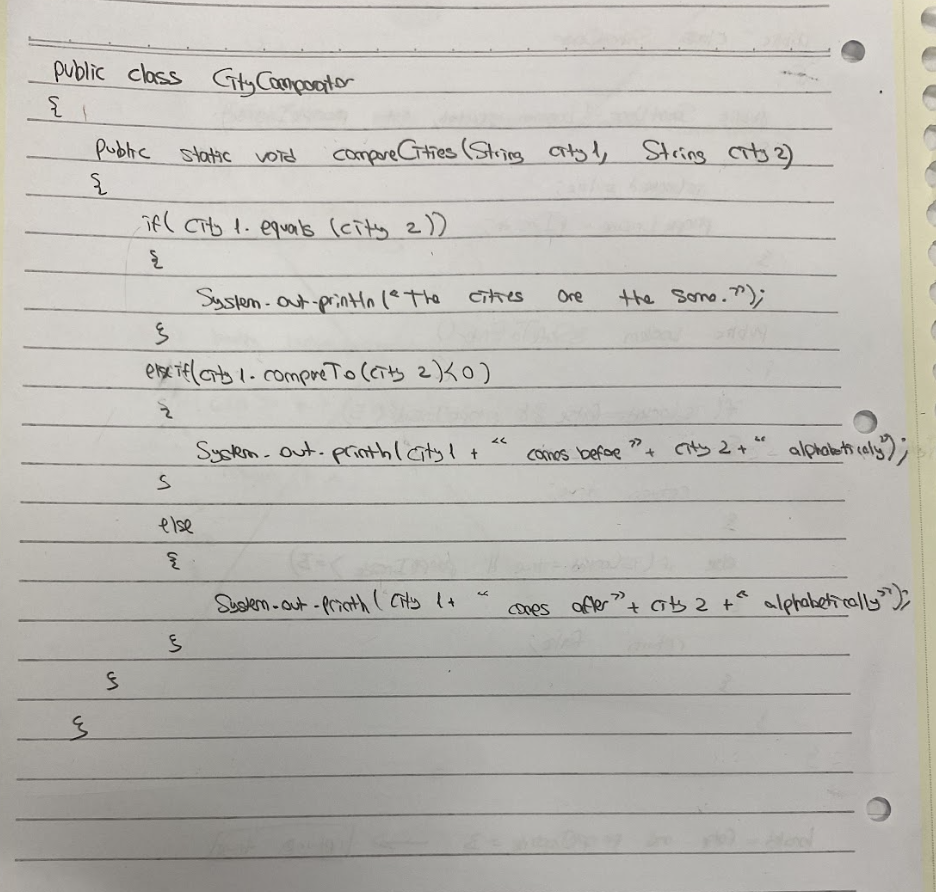 public class CityComparator
{
public static void compareCities(String city1, String city2)
{
if( city 1. equals (city 2))
{
System.out.println("The cities are the same.");
}
else if(city 1. compareTo(city 2)<0)
{
System.out.println(city1 + " comes before "+ city 2 + " alphabetically");
}
else
{
System.out.println( city 1+ " comes after "+ city 2 + " alphabetically");
}
}
}